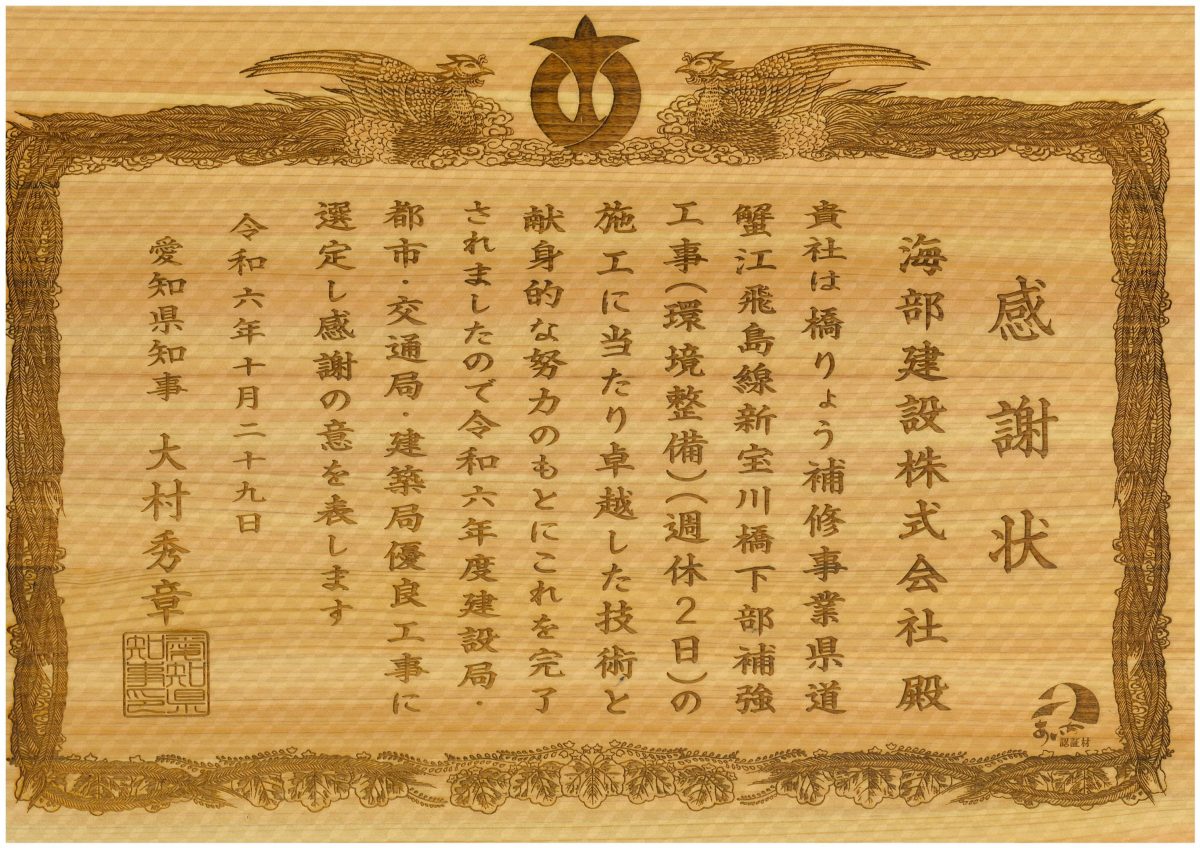 感謝状
海部建設株式会社 殿
貴社は橋りょう補修事業県道
蟹江飛島線新宝川橋下部補強
工事(環境整備)(週休2日)の
施工に当たり卓越した技術と
献身的な努力のもとにこれを完了
されましたので令和六年度建設局・
都市・交通局・建築局優良工事に
選定し感謝の意を表します
令和六年十月二十九日
愛知県知事 大村秀章
愛知県
知事之印
あいち
認証材